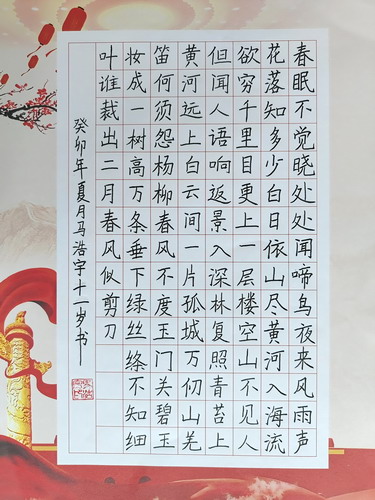 春眠不觉晓处处闻啼鸟夜来风雨声
花落知多少白日依山尽黄河入海流
欲穷千里目更上一层楼空山不见人
但闻人语响返景入深林复照青苔上
黄河远上白云间一片孤城万仞山羌
笛何须怨杨柳春风不度玉门关碧玉
妆成一树高万条垂下绿丝绦不知细
叶谁裁出二月春风似剪刀
癸卯年夏月马浩宇十一岁书